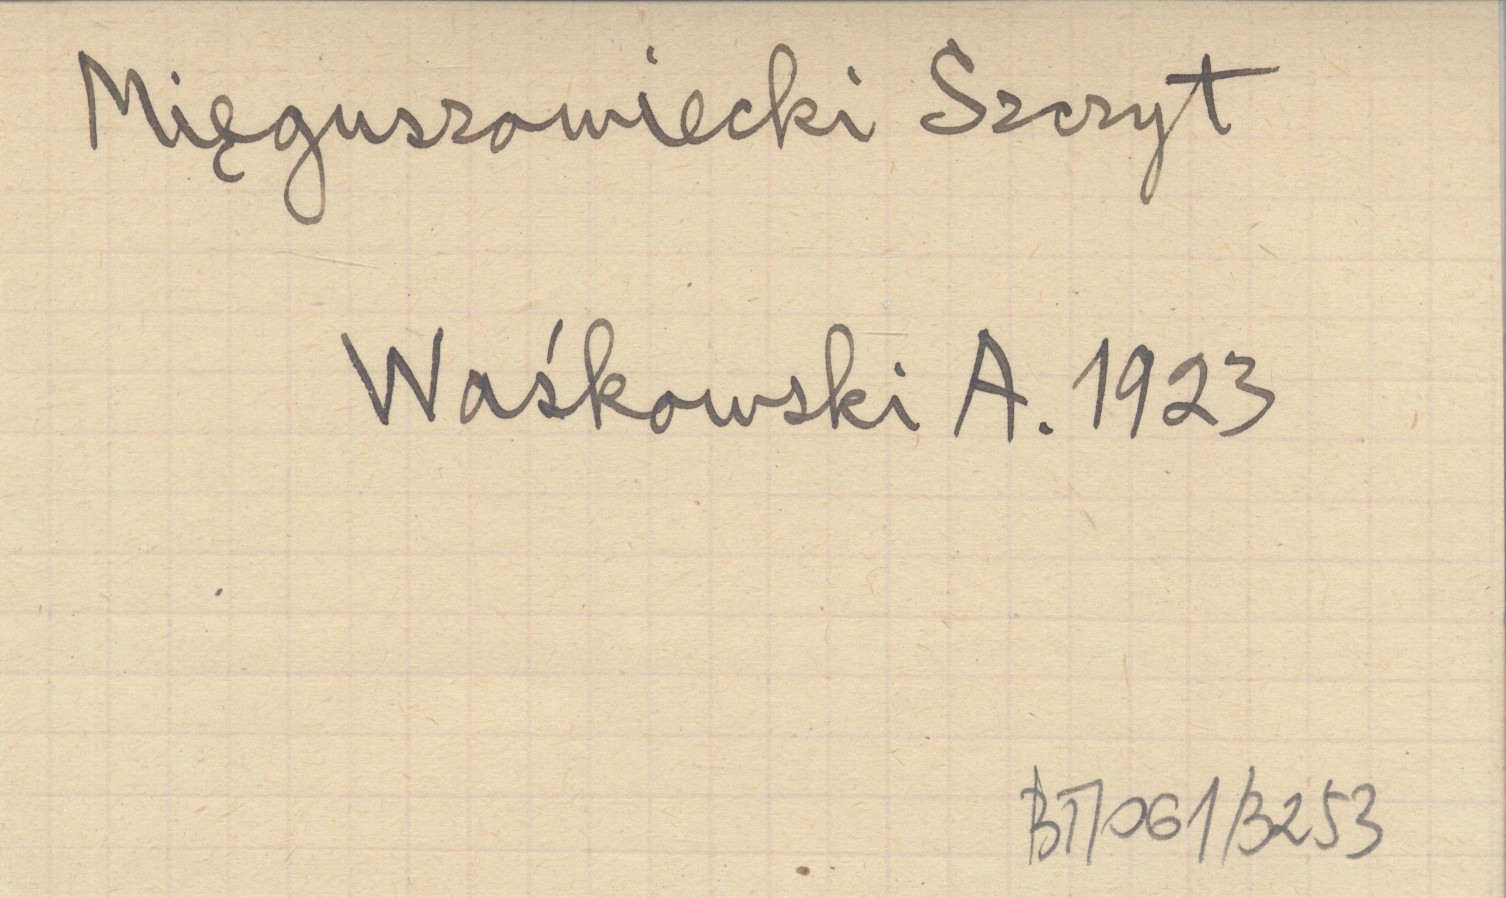 Mięguszowiecki Szczyt
Waśkowski A. 1923
BT/061/3253